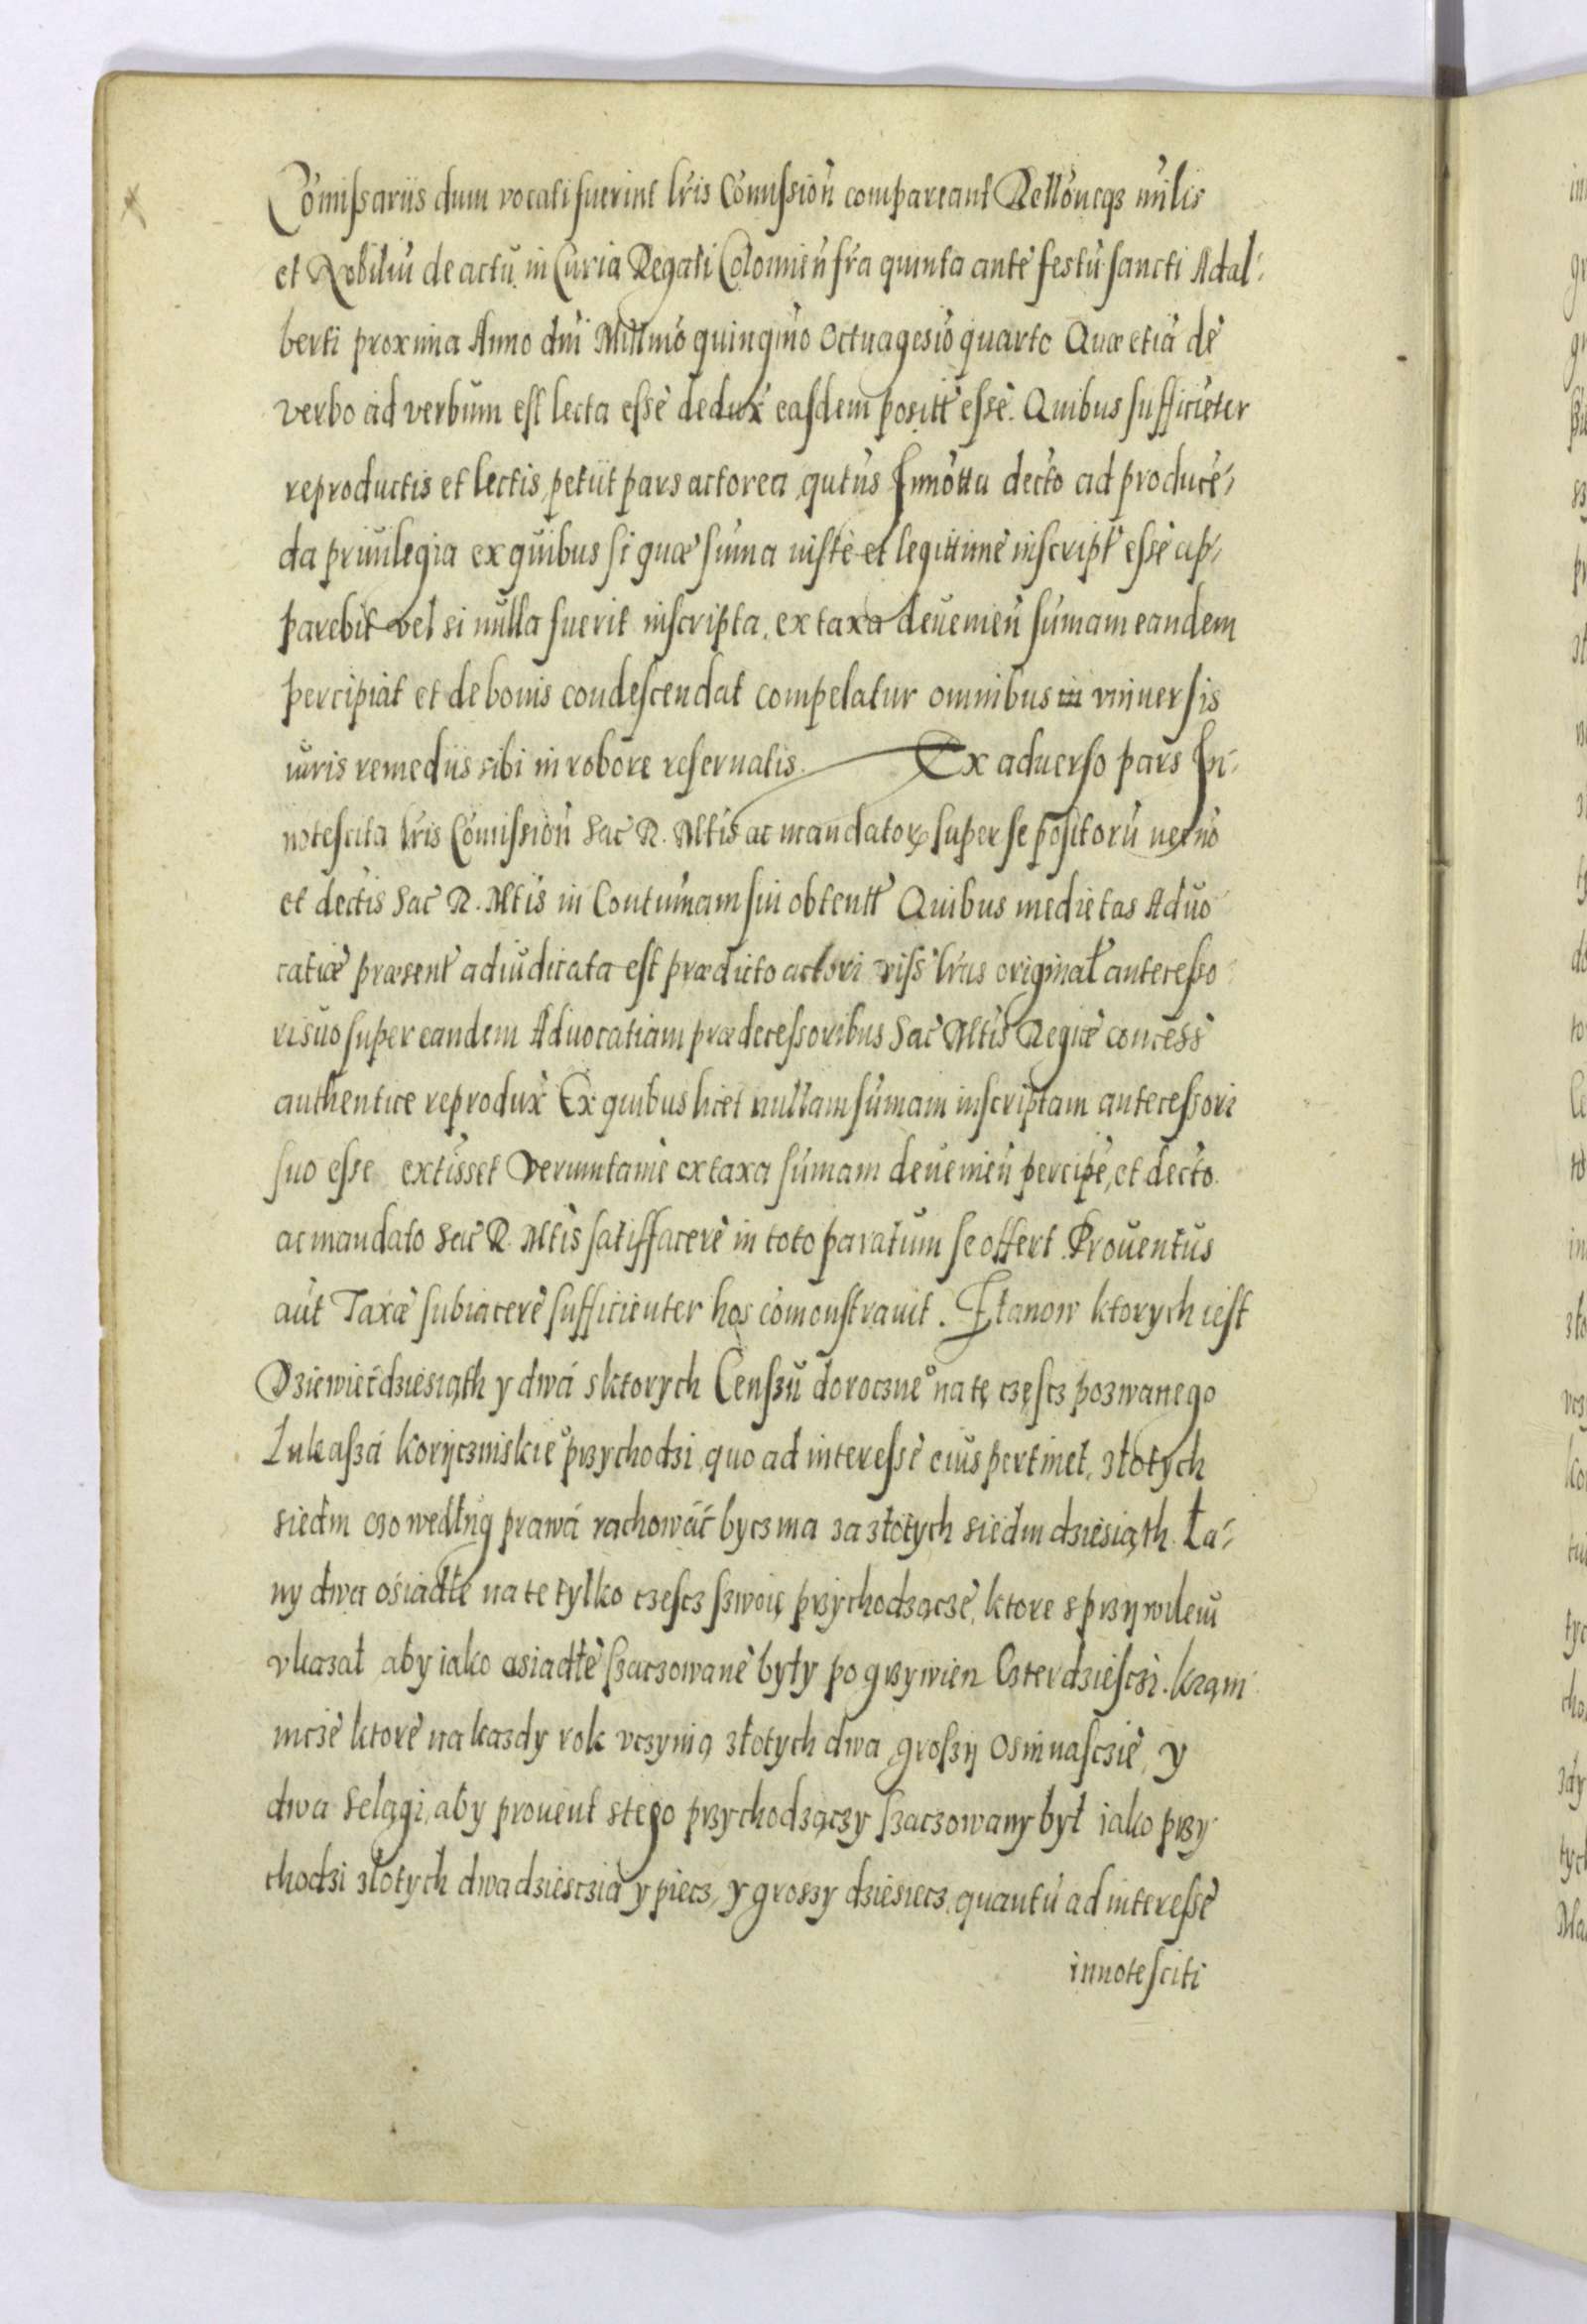 Comißariis dum vocati fuerint lris Comission compareant Rellonēqs mīlis
et Nobiliū de actu in Curia Regali Colomien fra quinta ante festū sancti Adal-
berti proxima Anno dni Millmo quingmo Octuagesio quarto Quæ etiā de
verbo ad verbum est lecta esse dedux easdem positt esse. Quibus sufficieter
reproductis et lectis, petiit pars actorea, qutus Innotta decto ad produce-
da priuilegia ex quibus si quæ suma iuste et legittime inscript esse ap-
parebit vel si nulla fuerit inscripta, ex taxa deuenien sumam eandem
percipiat et de bonis condescendat compelatur omnibus in vniuersis
iuris remediis sibi in robore reseruatis. Ex aduerso pars In-
notescita lris Comission Sac R. Mtis ac mandator super se positorū
et dectis Sac R. Mtis in Contumam sui obtentt Quibus medietas Aduo
catiæ præsent adiudicata est prædicto actori lras original antecesso
ri suo super eandem Aduocatiam prædecessoribus Sac Mtis Regiæ concess
authentice reprodux Ex quibus licet nullam sumam inscriptam antecessori
suo esse extisset Verumtame ex taxa sumam deuenien percipe, et decto
ac mandato Sac R. Mtis satisfacere in toto paratum se offert Prouentus
aut Taxæ subiacere sufficienter hos comonstrauit. Łanow ktorych iest
Dziewiećdziesiąth y dwá s ktorych Censzu doroczne° na tę częscz pozwanego
Lukaszá Koryczinskie° przychodzi, quo ad interesse eius pertinet, złotych
siedm czo wedlug prawá rachowáć bycz ma za złotych siedmdziesiąth. Ła-
ny dwa osiadłe na te tylko częscz szwoię przychodzącze, ktore s przywileiu
vkazał aby iako osiadłe szaczowane były po grzywien Czterdziesczi. Kram
nicze ktore na kazdy rok vczynią złotych dwa groszy Osmnasczie, y
dwa Selągi, aby prouent s tego przychodzączy szaczowany był iako przy
chodzi złotych dwadziesczia y piecz, y groszy dziesiecz, quantū ad interesse
innotesciti